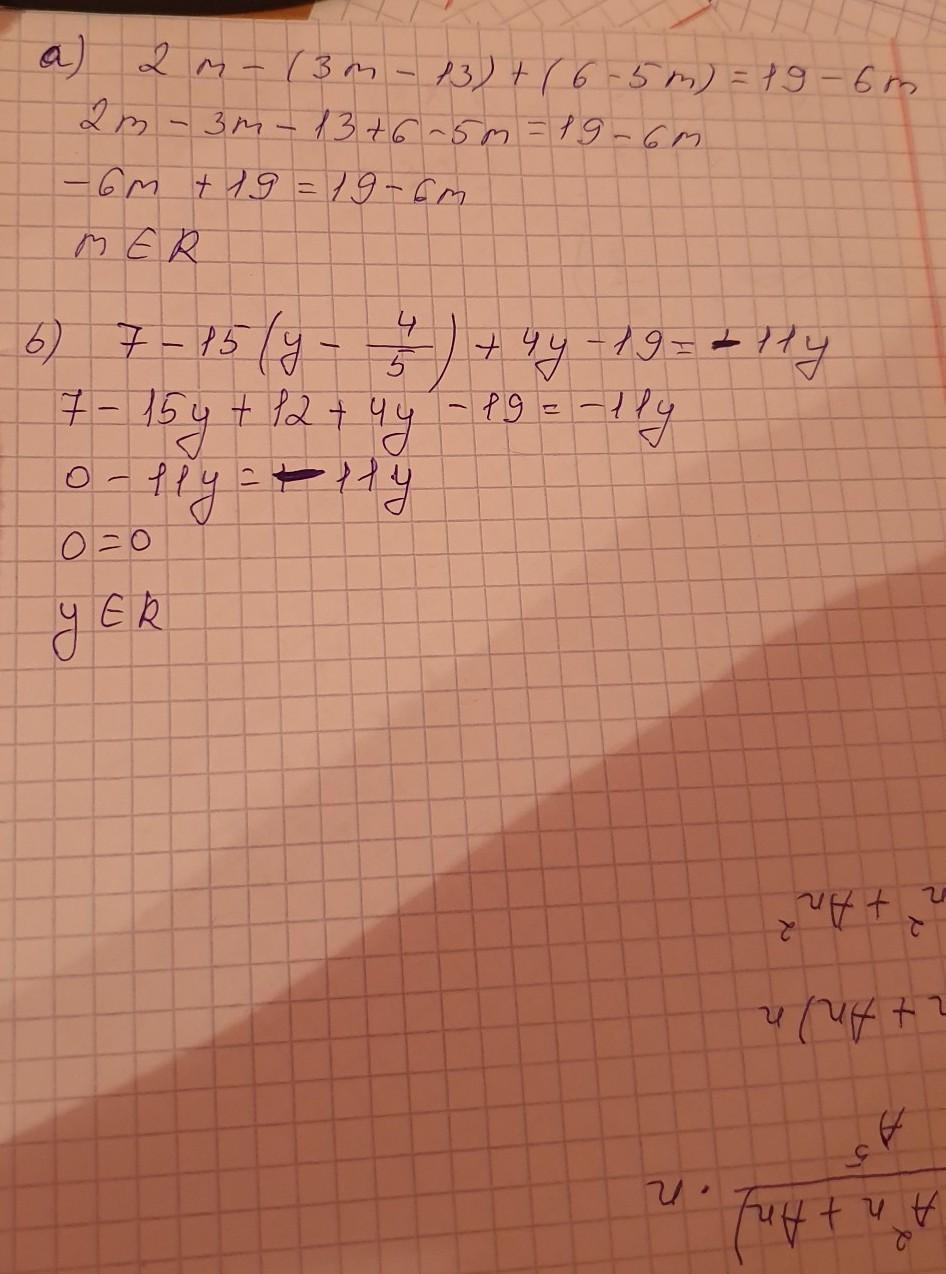 а) 2m - (3m - 13) + (6 - 5m) = 19 - 6m
2m - 3m - 13 + 6 - 5m = 19 - 6m
-6m + 19 = 19 - 6m
m ∈ R
б) 7 - 15(y - 4/5) + 4y - 19 = -11y
7 - 15y + 12 + 4y - 19 = -11y
0 - 11y = -11y
0 = 0
y ∈ R
n² + An²
n + An)n
A⁵
A²n + An) · n